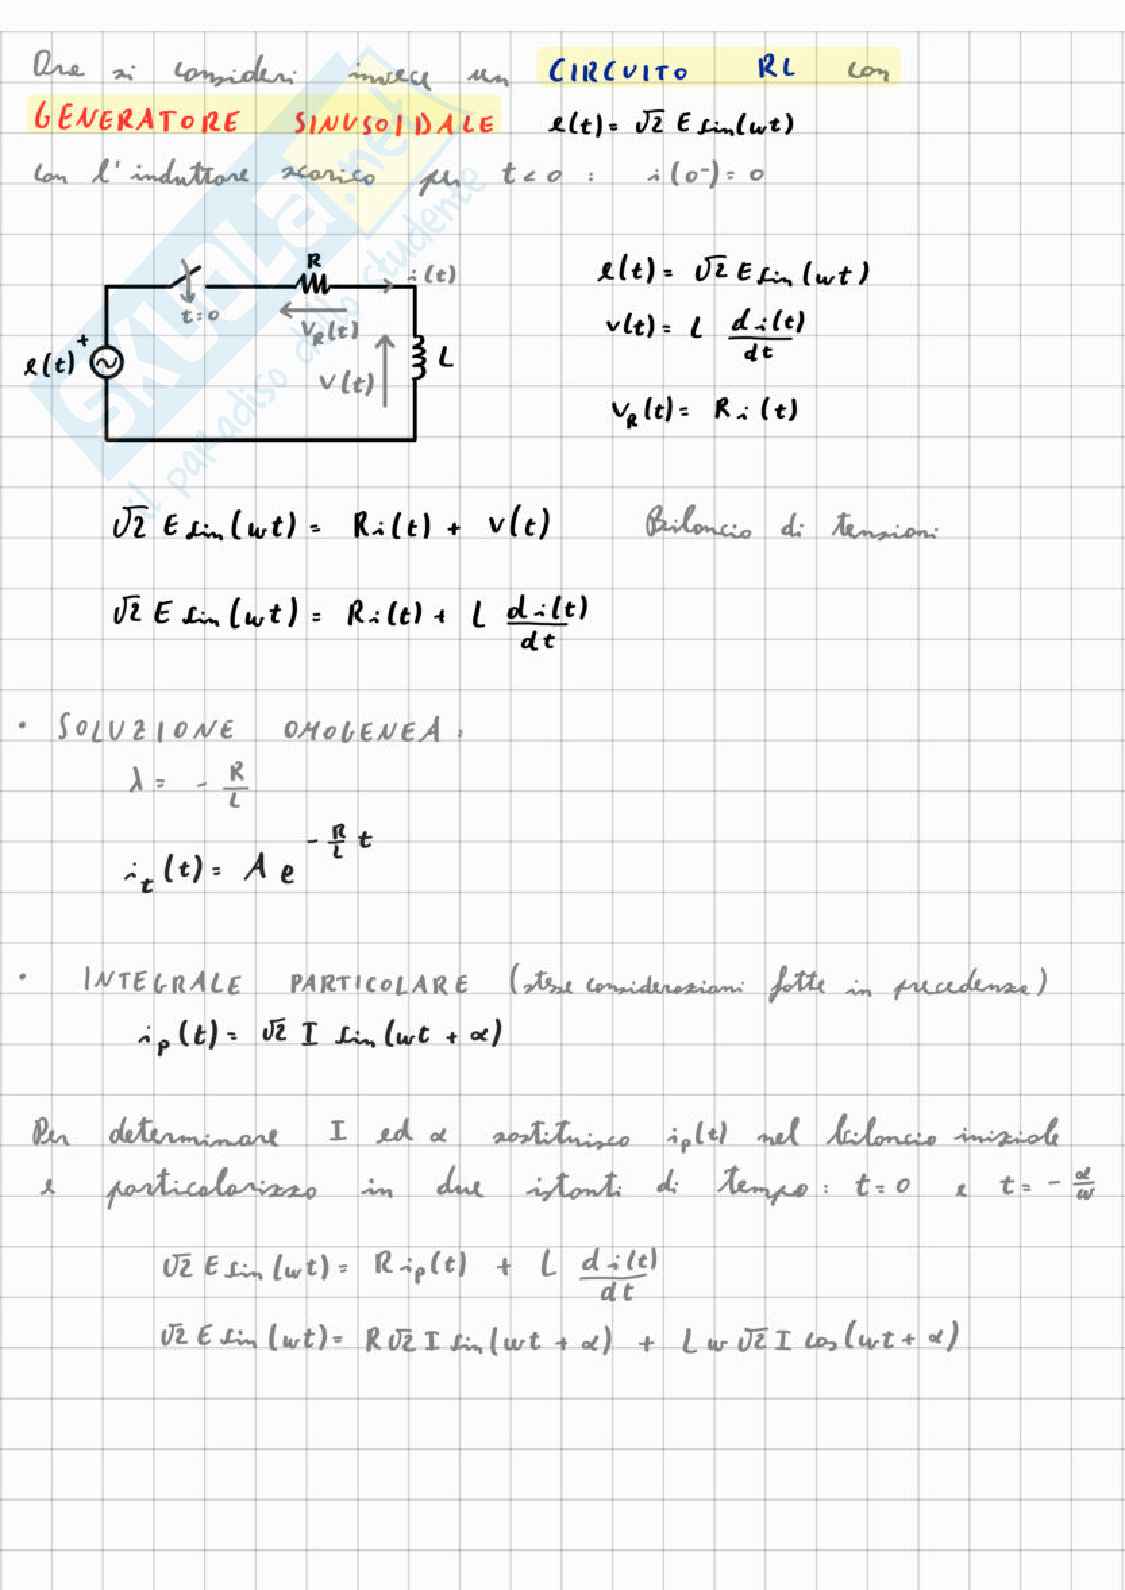 Ora si consideri invece un CIRCUITO RL con
GENERATORE SINUSOIDALE e(t) = √2 E sin(ωt)
con l'induttore scarico per t<0 : i(0⁻) = 0
R
i(t)
t=0
V_R(t)
e(t)
+
V(t)
L
e(t) = √2 E sin(ωt)
v(t) = L di(t)/dt
v_R(t) = R i(t)
√2 E sin(ωt) = R i(t) + v(t) Bilancio di tensioni
√2 E sin(ωt) = R i(t) + L di(t)/dt
• SOLUZIONE OMOGENEA:
λ = - R/L
i_t(t) = A e^(-R/L t)
• INTEGRALE PARTICOLARE (stesse considerazioni fatte in precedenza)
i_p(t) = √2 I sin(ωt + α)
Per determinare I ed α sostituisco i_p(t) nel bilancio iniziale
e particolarizzo in due istanti di tempo: t=0 e t = - α/ω
√2 E sin(ωt) = R i_p(t) + L di(t)/dt
√2 E sin(ωt) = R √2 I sin(ωt + α) + L ω √2 I cos(ωt + α)
SKUOLA.net
il paradiso dello studente